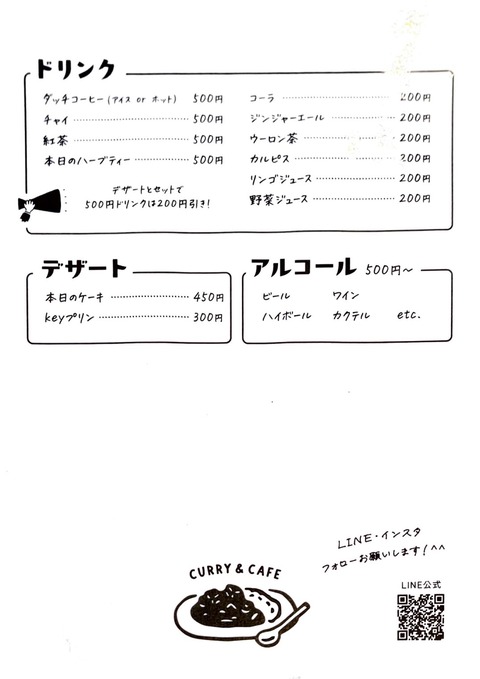 ドリンク
ダッチコーヒー(アイス or ホット) 500円
チャイ 500円
紅茶 500円
本日のハーブティー 500円
デザートとセットで
500円ドリンクは200円引き!
コーラ 200円
ジンジャーエール 200円
ウーロン茶 200円
カルピス 200円
リンゴジュース 200円
野菜ジュース 200円
デザート
本日のケーキ 450円
keyプリン 300円
アルコール 500円〜
ビール ワイン
ハイボール カクテル etc.
LINE・インスタ
フォローお願いします!^^
LINE公式
CURRY & CAFE